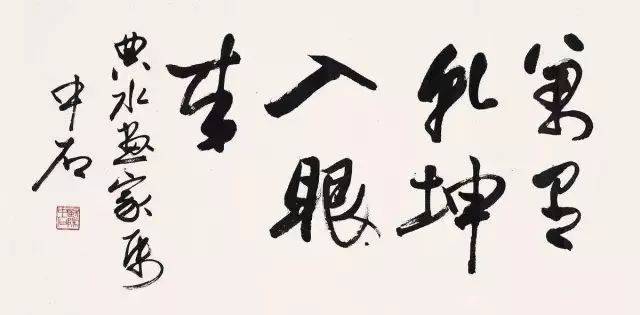 萬里
乾坤
入眼
来
典水畫家属
中石